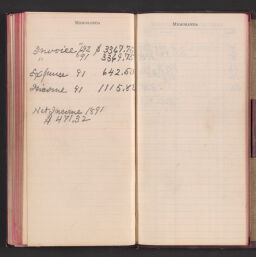 MEMORANDA
Invoice 1/92 $ 3367.75
" 91 3369.75
Expence 91 642.50
Income 91 1115.82
Net Income 1891
$ 471.32
MEMORANDA